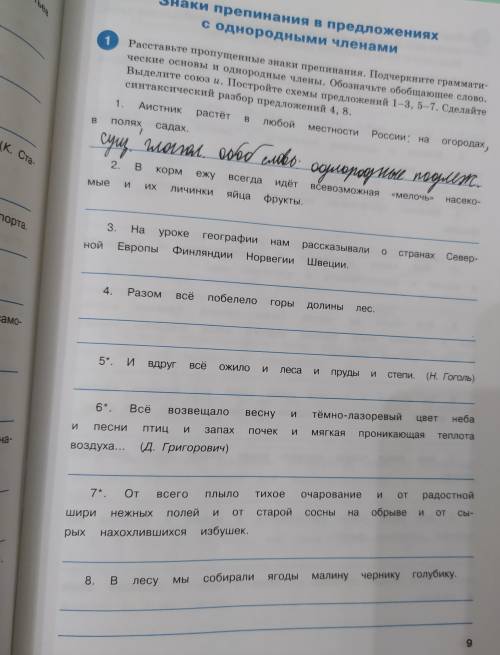 Знаки препинания в предложениях
с однородными членами
1
Расставьте пропущенные знаки препинания. Подчеркните граммати-
ческие основы и однородные члены. Обозначьте обобщающее слово.
Выделите союз и. Постройте схемы предложений 1–3, 5–7. Сделайте
синтаксический разбор предложений 4, 8.
1. Аистник растёт в любой местности России: на огородах,
в полях, садах.
сущ. глагол. обоб слово. однородные подлеж.
2. В корм ежу всегда идёт всевозможная «мелочь» насеко-
мые и их личинки яйца фрукты.
3. На уроке географии нам рассказывали о странах Север-
ной Европы Финляндии Норвегии Швеции.
4. Разом всё побелело горы долины лес.
5*. И вдруг всё ожило и леса и пруды и степи. (Н. Гоголь)
6*. Всё возвещало весну и тёмно-лазоревый цвет неба
и песни птиц и запах почек и мягкая проникающая теплота
воздуха... (Д. Григорович)
7*. От всего плыло тихое очарование и от радостной
шири нежных полей и от старой сосны на обрыве и от сы-
рых нахохлившихся избушек.
8. В лесу мы собирали ягоды малину чернику голубику.
9
(К. Ста-
порта.
само-
на-